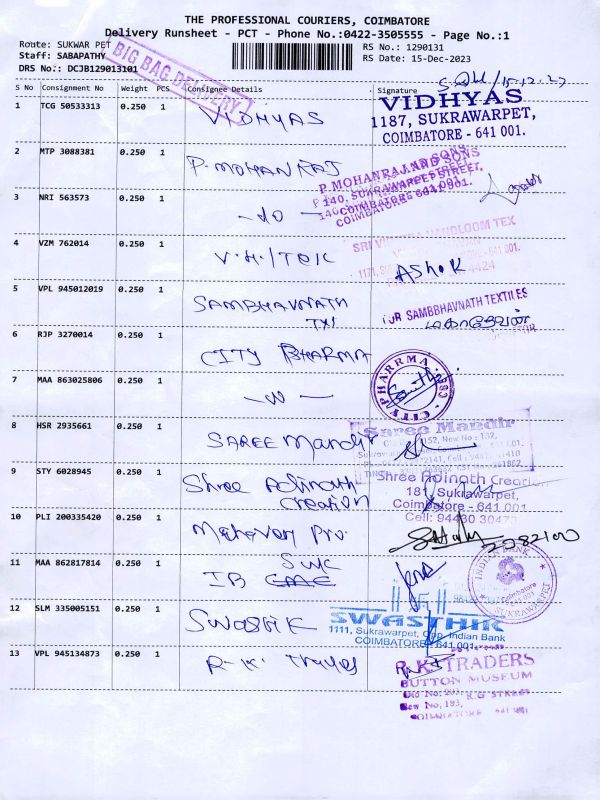 THE PROFESSIONAL COURIERS, COIMBATORE
Delivery Runsheet - PCT - Phone No.:0422-3505555 - Page No.:1
Route: SUKWAR PET
RS No.: 1290131
Staff: SABAPATHY
RS Date: 15-Dec-2023
DRS No.: DCJB129013101
BIG BAG DELIVERY
15.12.23
S No Consignment No Weight PCS Consignee Details Signature
1 TCG 50533313 0.250 1 VIDHYAS
VIDHYAS
1187, SUKRAWARPET,
COIMBATORE - 641 001.
2 MTP 3088381 0.250 1 P. MOHAN RAJ
P. MOHANRAJ AND SONS
140, SUKRAWARPET STREET,
COIMBATORE 641 001.
3 NRI 563573 0.250 1 - do -
4 VZM 762014 0.250 1 V.H./TEX
HANDLOOM TEX
ASHOK
5 VPL 945012019 0.250 1 SAMBHAVNATH
TXT
FOR SAMBBHAVNATH TEXTILES
மகாதேவன்
6 RJP 3270014 0.250 1 CITY PHARMA
CITY PHARRMA
7 MAA 863025806 0.250 1
8 HSR 2935661 0.250 1 SAREE Mandir
Saree Mandir
9 STY 6028945 0.250 1 Shree Adinath
Creation
Shree Adinath Creation
181, Sukrawarpet,
Coimbatore - 641 001.
Cell: 94430 30473
10 PLI 200335420 0.250 1
11 MAA 862817814 0.250 1 IB
SUK
INDIAN BANK
Coimbatore
641 001
SUKRAWARPET
12 SLM 335005151 0.250 1 SWASTIK
SWASTHIK
1111, Sukrawarpet, Opp. Indian Bank
COIMBATORE - 641 001.
13 VPL 945134873 0.250 1 R.K. Trades
R.K. TRADERS
BUTTON MUSEUM
R.G STREET
New No; 193,
COIMBATORE - 641 001.